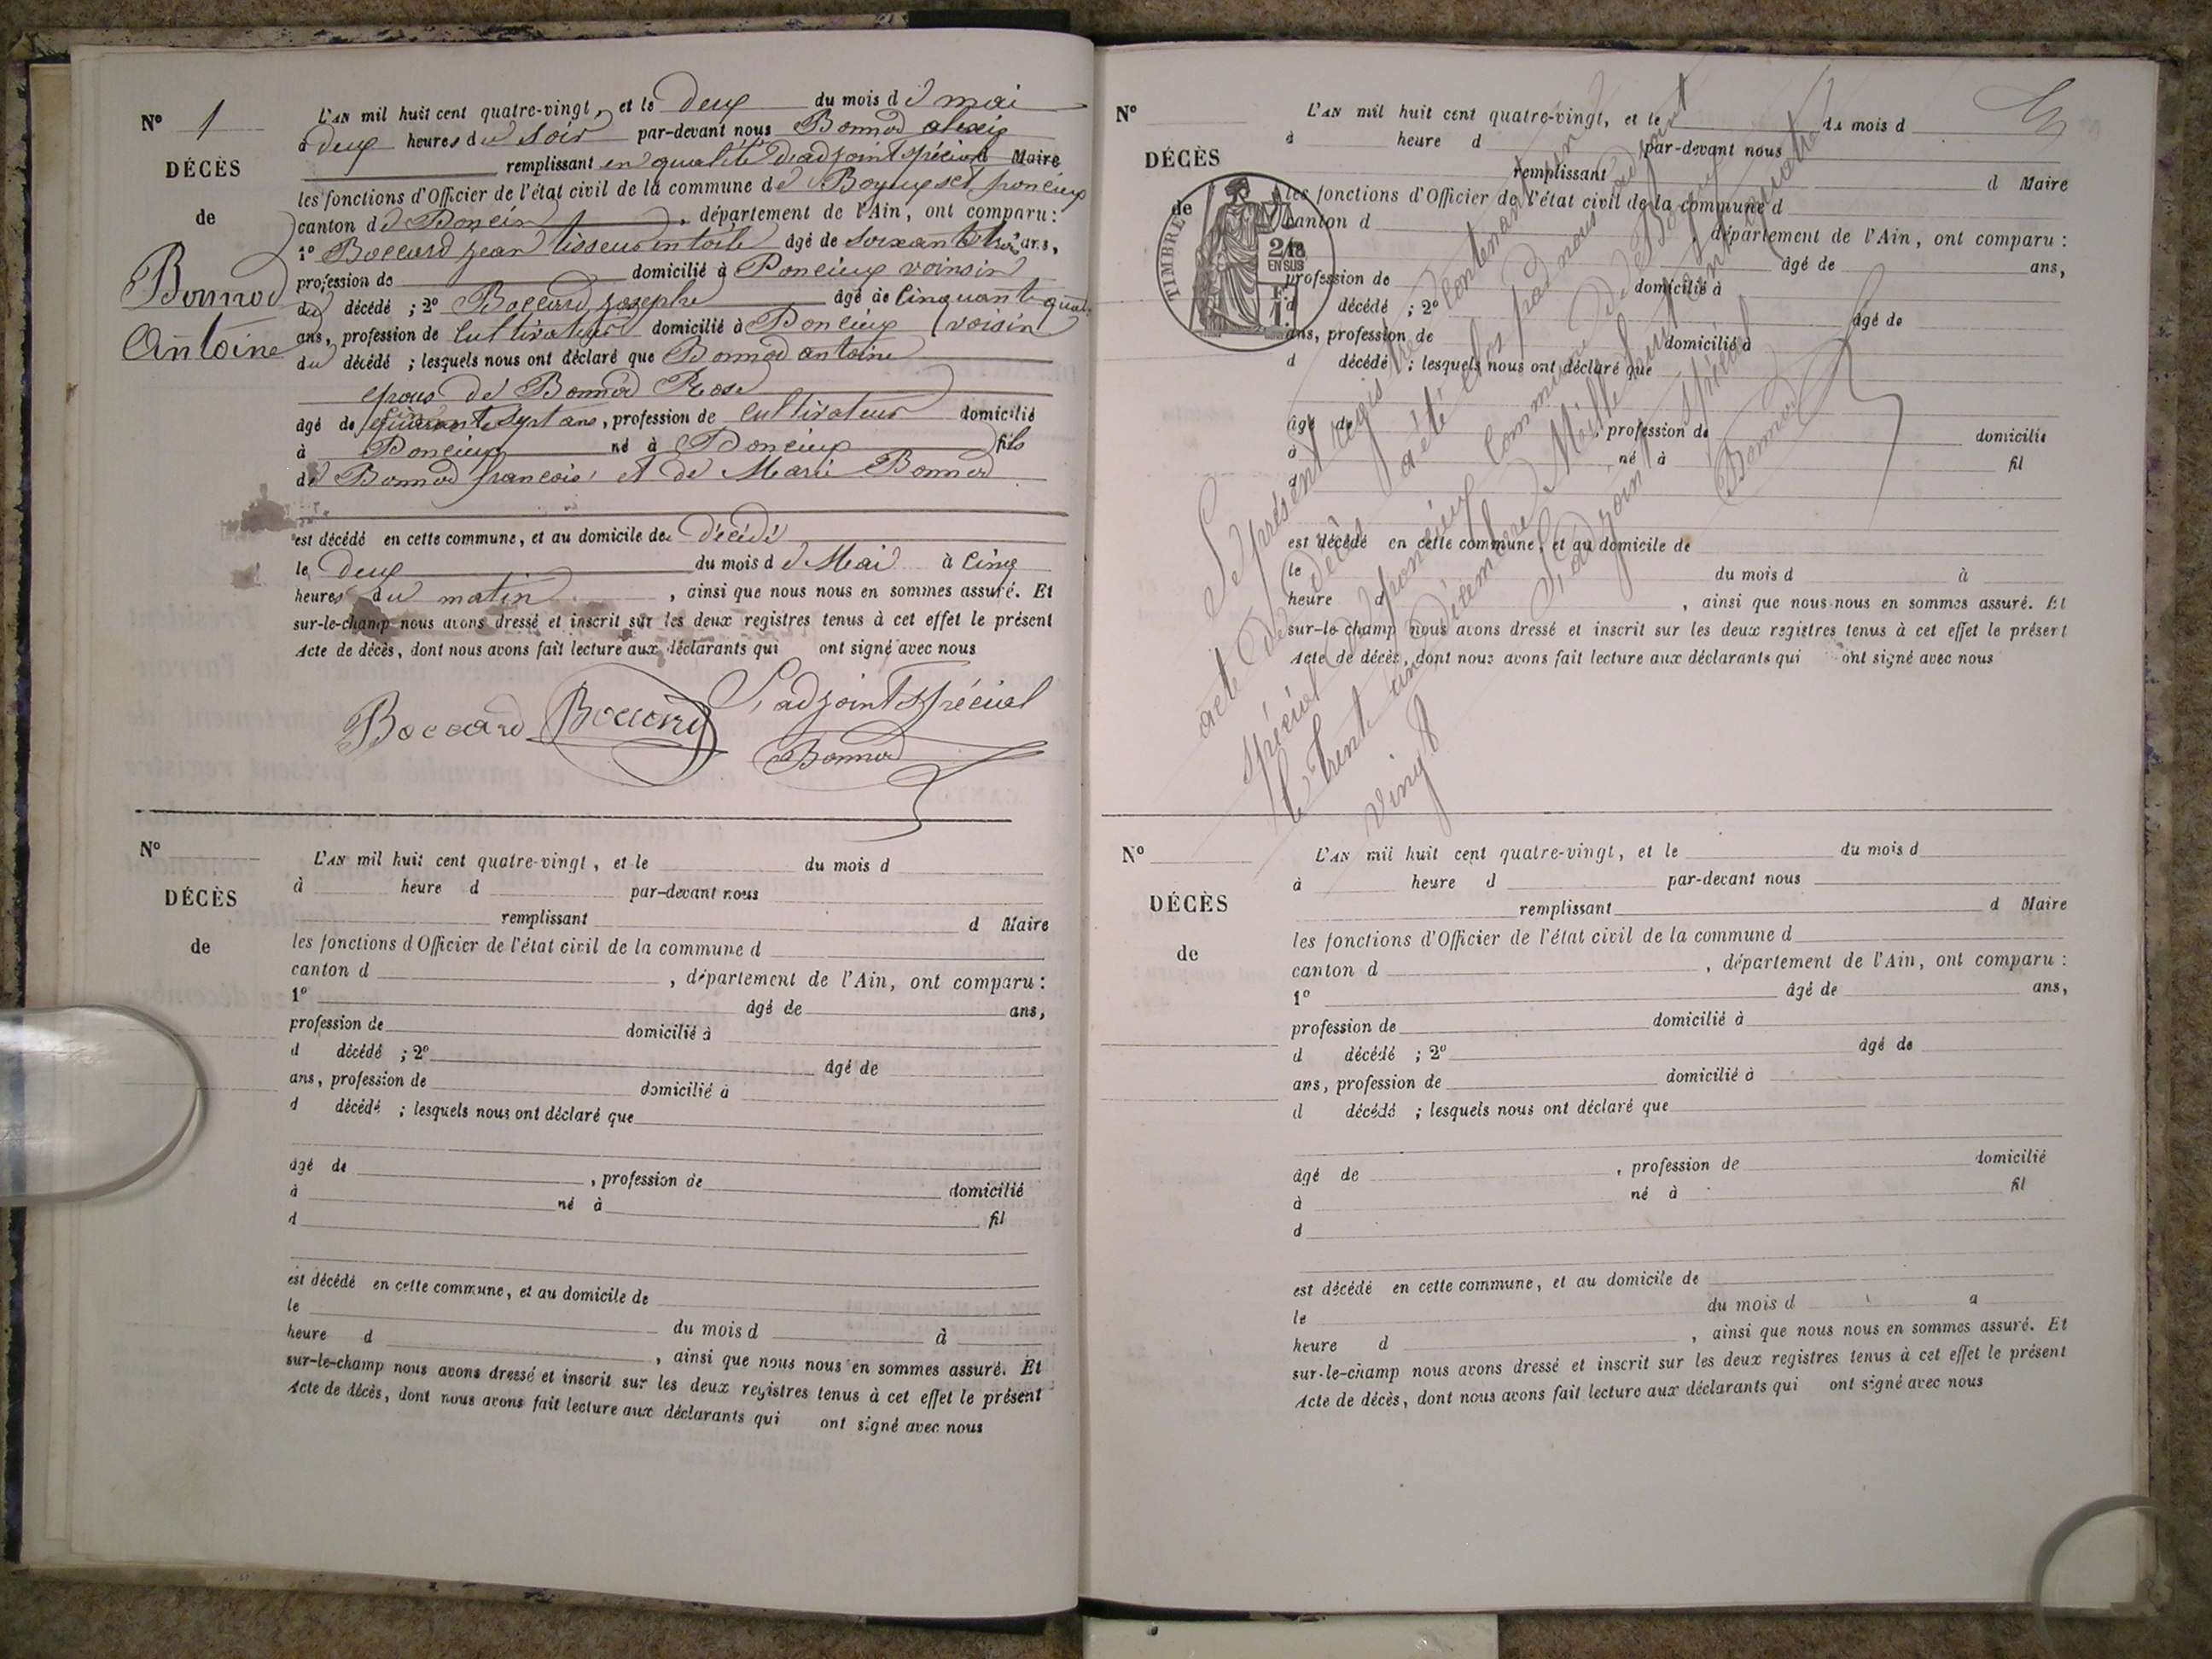 N° 1
DÉCÈS
de
Bonnod
Antoine
L'AN mil huit cent quatre-vingt, et le deux du mois d e mai
à deux heures du soir par-devant nous Bonnod alexis
remplissant en qualité d'adjoint spécial d Maire
les fonctions d'Officier de l'état civil de la commune de Boyeux st jerome
canton de Poncin, département de l'Ain, ont comparu :
1° Boccard jean tisseur en toile âgé de soixante trois ans,
profession de domicilié à Poncieux voinsin
du décédé ; 2° Boccard joseph âgé de cinquante quatre
ans, profession de cultivateur domicilié à Poncieux voisin
du décédé ; lesquels nous ont déclaré que Bonnod antoine
epoux de Bonnod Rose
âgé de sept ans, profession de cultivateur domicilié
à Poncieux né à Poncieux fils
de Bonnod francois et de Marie Bonnod
est décédé en cette commune, et au domicile de décédé
le deux du mois d e Mai à cinq
heures du matin, ainsi que nous nous en sommes assuré. Et
sur-le-champ nous avons dressé et inscrit sur les deux registres tenus à cet effet le présent
Acte de décès, dont nous avons fait lecture aux déclarants qui ont signé avec nous
L'adjoint spécial
Boccard Boccard
Bonnod
N°
DÉCÈS
de
L'AN mil huit cent quatre-vingt, et le du mois d
à heure d par-devant nous
remplissant d Maire
les fonctions d'Officier de l'état civil de la commune d
canton d , département de l'Ain, ont comparu :
1° âgé de ans,
profession de domicilié à
d décédé ; 2° âgé de
ans, profession de domicilié à
d décédé ; lesquels nous ont déclaré que
âgé de , profession de domicilié
à né à
d fil
est décédé en cette commune, et au domicile de
le du mois d à
heure d , ainsi que nous nous en sommes assuré. Et
sur-le-champ nous avons dressé et inscrit sur les deux registres tenus à cet effet le présent
Acte de décès, dont nous avons fait lecture aux déclarants qui ont signé avec nous
N°
DÉCÈS
de
TIMBRE
2/10
EN SUS
L'AN mil huit cent quatre-vingt, et le du mois d
à heure d par-devant nous
remplissant d Maire
les fonctions d'Officier de l'état civil de la commune d
canton d , département de l'Ain, ont comparu :
âgé de ans,
profession de domicilié à
d décédé ; 2° âgé de
ans, profession de domicilié à
d décédé ; lesquels nous ont déclaré que
âgé de , profession de domicilié
à né à fil
d
est décédé en cette commune, et au domicile de
le du mois d à
heure d , ainsi que nous nous en sommes assuré. Et
sur-le-champ nous avons dressé et inscrit sur les deux registres tenus à cet effet le présent
Acte de décès, dont nous avons fait lecture aux déclarants qui ont signé avec nous
Le présent registre contenant un
acte de décès a été clos par nous adjoint
spécial de poncieux commune de Boyeux
le trente un décembre Mille huit cent quatre
vingt
L'adjoint spécial
Bonnod
N°
DÉCÈS
de
L'AN mil huit cent quatre-vingt, et le du mois d
à heure d par-devant nous
remplissant d Maire
les fonctions d'Officier de l'état civil de la commune d
canton d , département de l'Ain, ont comparu :
1° âgé de ans,
profession de domicilié à
d décédé ; 2° âgé de
ans, profession de domicilié à
d décédé ; lesquels nous ont déclaré que
âgé de , profession de domicilié
à né à fil
d
est décédé en cette commune, et au domicile de
le du mois d à
heure d , ainsi que nous nous en sommes assuré. Et
sur-le-champ nous avons dressé et inscrit sur les deux registres tenus à cet effet le présent
Acte de décès, dont nous avons fait lecture aux déclarants qui ont signé avec nous